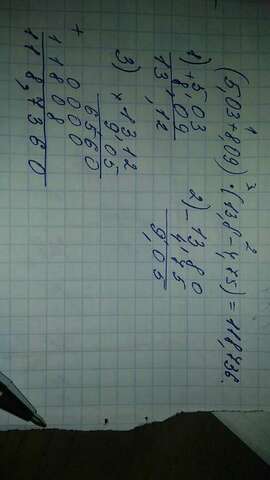 1 3 2
(5,03+8,09) · (13,8-4,75) = 118,736.
1) + 5,03
8,09
13,12
2) - 13,80
4,75
9,05
3) × 13,12
9,05
6560
+ 0000
11808
118,7360